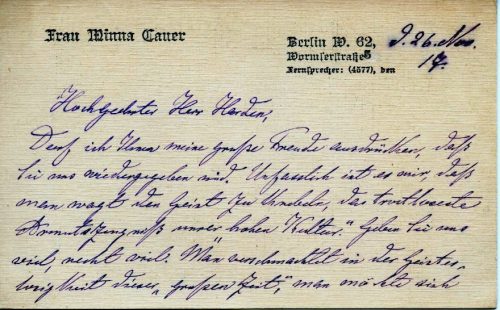 Frau Minna Cauer
Berlin W. 62, d. 26. Nov.
Wormserstraße 5 17.
Fernsprecher: (4577), den
Hochgeehrter Herr Harden,
Darf ich Ihnen meine große Freude ausdrücken, daß
Sie uns wiedergegeben sind. Unfasslich ist es mir, daß
man wagt den Geist zu knebeln, das trostloseste
Armutszeugniß unsrer hohen „Kultur“. Geben Sie uns
viel, recht viel. Man verschmachtet in der Geistes
losigkeit dieser „großen Zeit“, man möchte sich